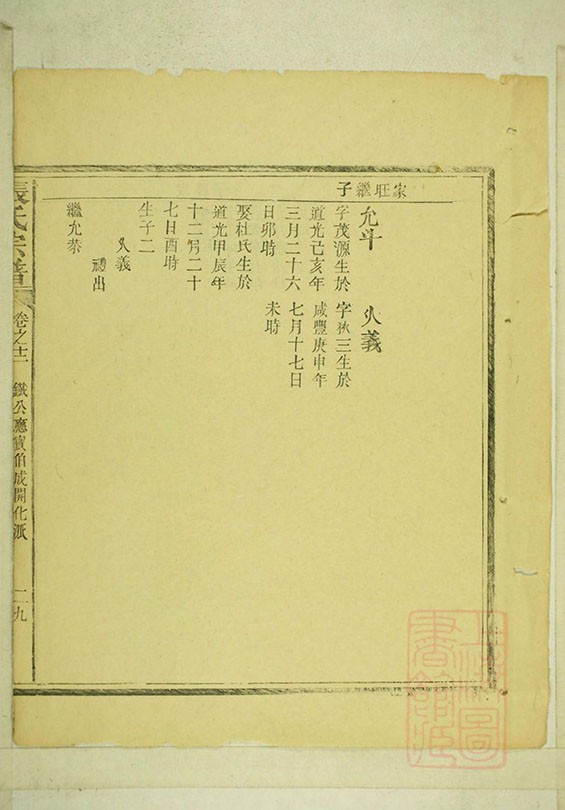 家旺繼子
允斗
字茂源生於
道光己亥年
三月二十六
日卯時
娶杜氏生於
道光甲辰年
十二月二十
七日酉時
生子二
乂義
禮出
繼允恭
乂義
字狄三生於
咸豐庚申年
七月十七日
未時
張氏宗譜
卷之十二
鐵公應寅伯成開化派
二九
上海圖書館藏